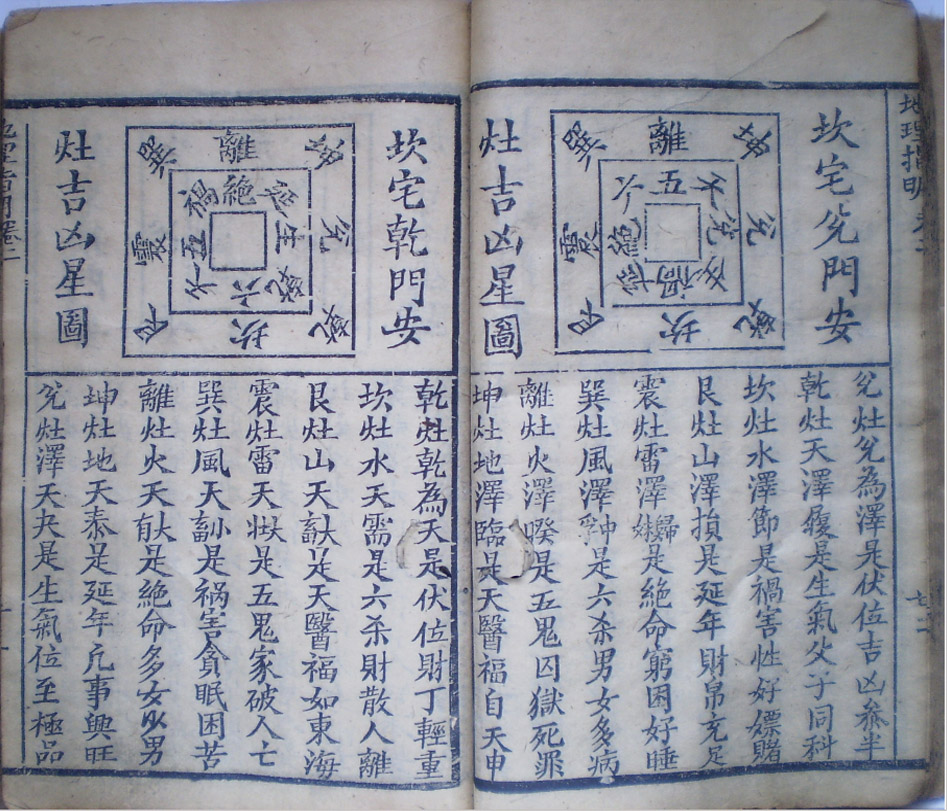 地理指明
坎宅兊門安
灶吉凶星圖
巽 離 坤
六 五 天
震 絕 兊
延 禍 生
艮 坎 乾
兊灶兊為澤是伏位吉凶參半
乾灶天澤履是生氣父子同科
坎灶水澤節是禍害性好嫖賭
艮灶山澤損是延年財帛充足
震灶雷澤歸妹是絕命窮困好睡
巽灶風澤中孚是六杀男女多病
離灶火澤暌是五鬼囚獄死罪
坤灶地澤臨是天醫福自天申
坎宅乾門安
灶吉凶星圖
巽 離 坤
禍 絕 延
震 五 生 兊
天 六 乾
艮 坎 乾
乾灶乾為天是伏位財丁輕重
坎灶水天需是六杀財散人離
艮灶山天大畜是天醫福如東海
震灶雷天大壯是五鬼家破人亡
巽灶風天小畜是禍害貪眠困苦
離灶火天大有是絕命多女少男
坤灶地天泰是延年亢事興旺
兊灶澤天夬是生氣位至極品